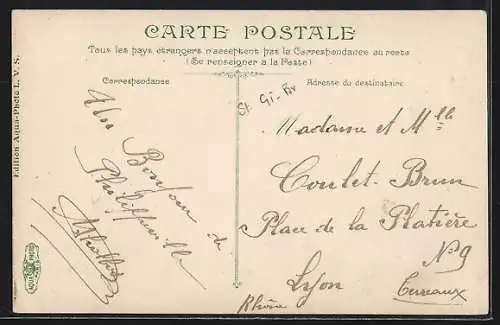 CARTE POSTALE
Tous les pays étrangers n'acceptent pas la Correspondance au recto
(Se renseigner à la Poste)
Correspondance
Adresse du destinataire
Edition Aqua-Photo L. V. S.
Un Bonjour de
Philippeville
Madame et Mlle
Coulet-Brun
Place de la Platière
N° 9
Lyon
Rhône
Terreaux